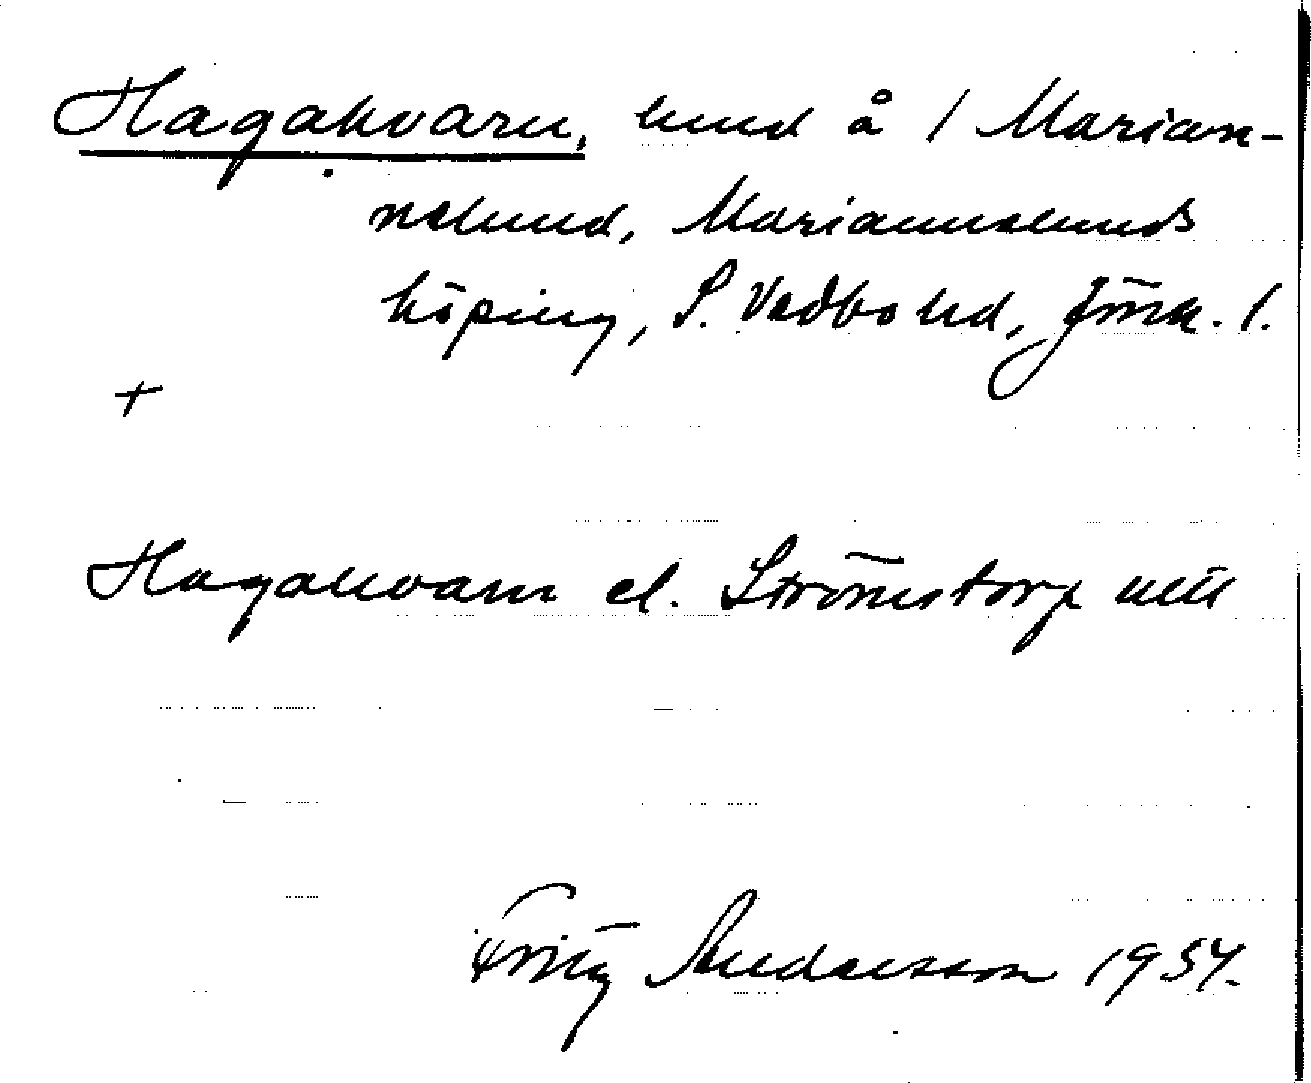 Hagakvarn, lund å 1 Marian-
nelund, Mariannelunds
köping, S. Vedbo hd, Jönk. l.
+
Hagakvarn el. Strömstorp
Fritz Andersson 1954.